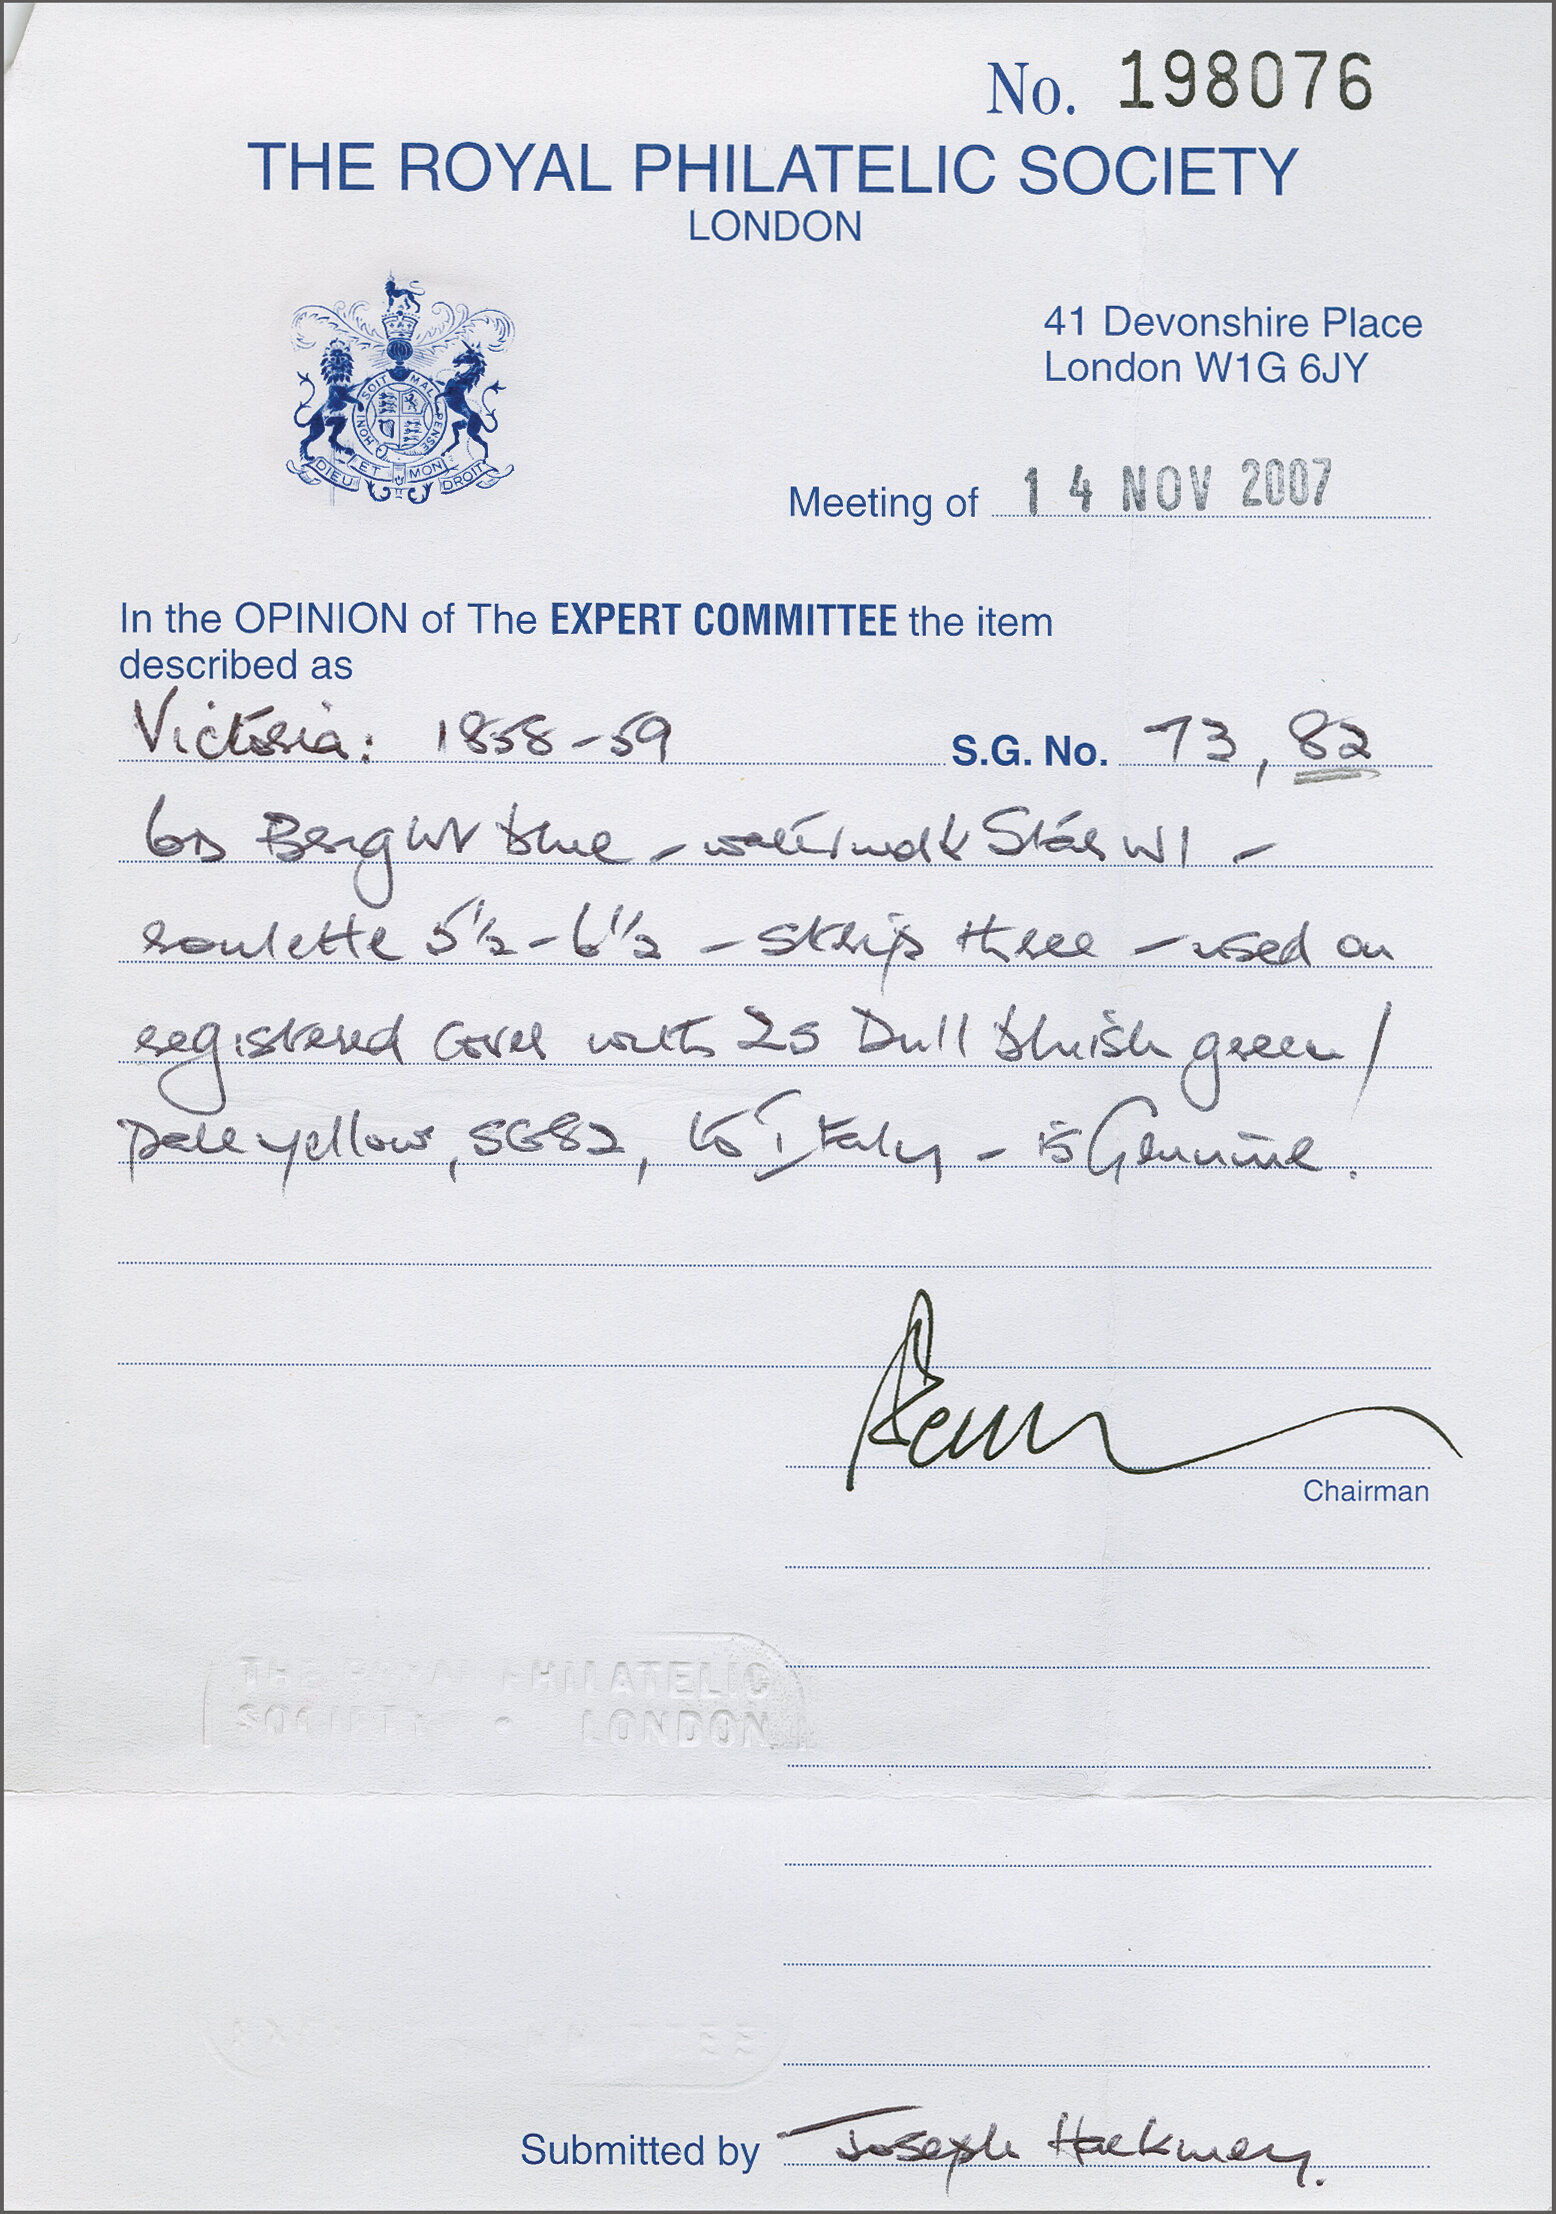 No. 198076
THE ROYAL PHILATELIC SOCIETY
LONDON
41 Devonshire Place
London W1G 6JY
HONI SOIT MAL PENSE
DIEU ET MON DROIT
Meeting of 14 NOV 2007
In the OPINION of The EXPERT COMMITTEE the item
described as
Victoria: 1858-59 S.G. No. 73, 82
6D Bright blue - watermark Star W1 -
roulette 5½-6½ - strip three - used on
registered cover with 2s Dull bluish green/
pale yellow, SG82, to Italy - is Genuine.
Chairman
THE ROYAL PHILATELIC
SOCIETY • LONDON
Submitted by Joseph Hackmey.